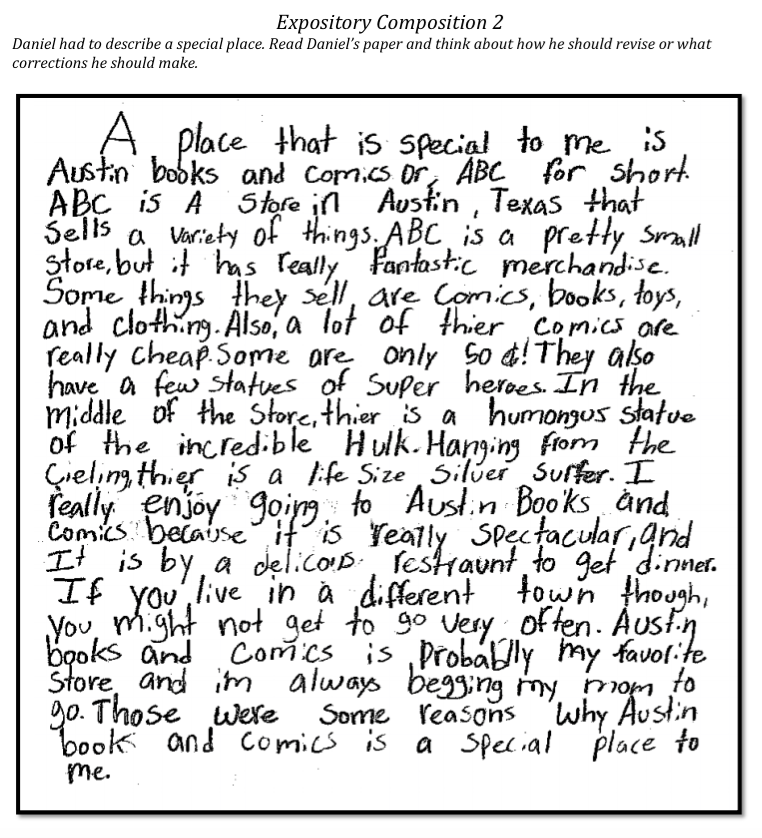 Expository Composition 2
Daniel had to describe a special place. Read Daniel's paper and think about how he should revise or what
corrections he should make.
A place that is special to me is
Austin books and comics or, ABC for short.
ABC is A Store in Austin, Texas that
Sells a variety of things. ABC is a pretty small
store, but it has really fantastic merchandise.
Some things they sell are comics, books, toys,
and clothing. Also, a lot of thier comics are
really cheap. Some are only 50 ¢! They also
have a few statues of super heroes. In the
middle of the store, thier is a humongus statue
of the incredible Hulk. Hanging from the
Cieling, thier is a life size silver surfer. I
really enjoy going to Austin Books and
comics because it is really spectacular, and
It is by a delicous restraunt to get dinner.
If you live in a different town though,
you might not get to go very often. Austin
books and comics is probablly my favorite
store and i'm always begging my mom to
go. Those were some reasons why Austin
books and comics is a special place to
me.